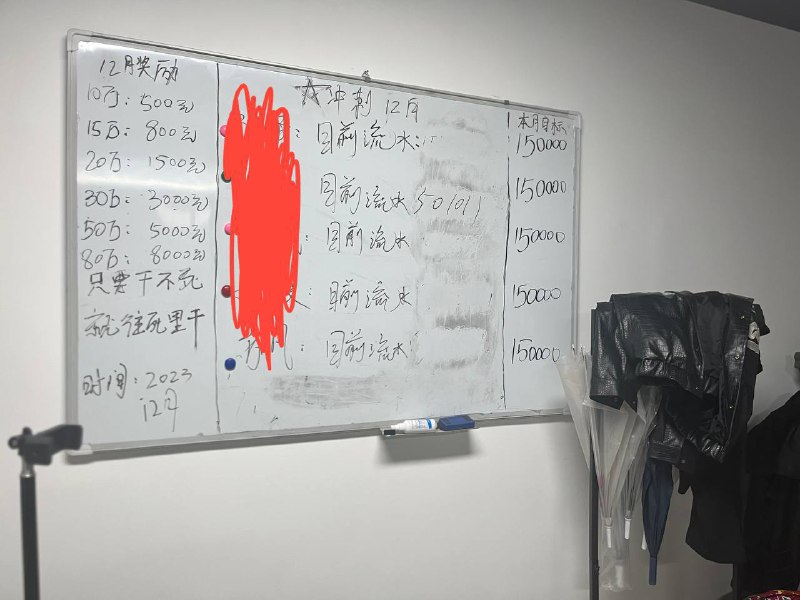 12月奖励
10万：500元
15万：800元
20万：1500元
30万：3000元
50万：5000元
80万：8000元
只要干不死
就往死里干
时间：2023
12月
☆冲刺 12月
目前流水：
目前流水 501011
：目前流水
：目前流水
：目前流水
本月目标
150000
150000
150000
150000
150000